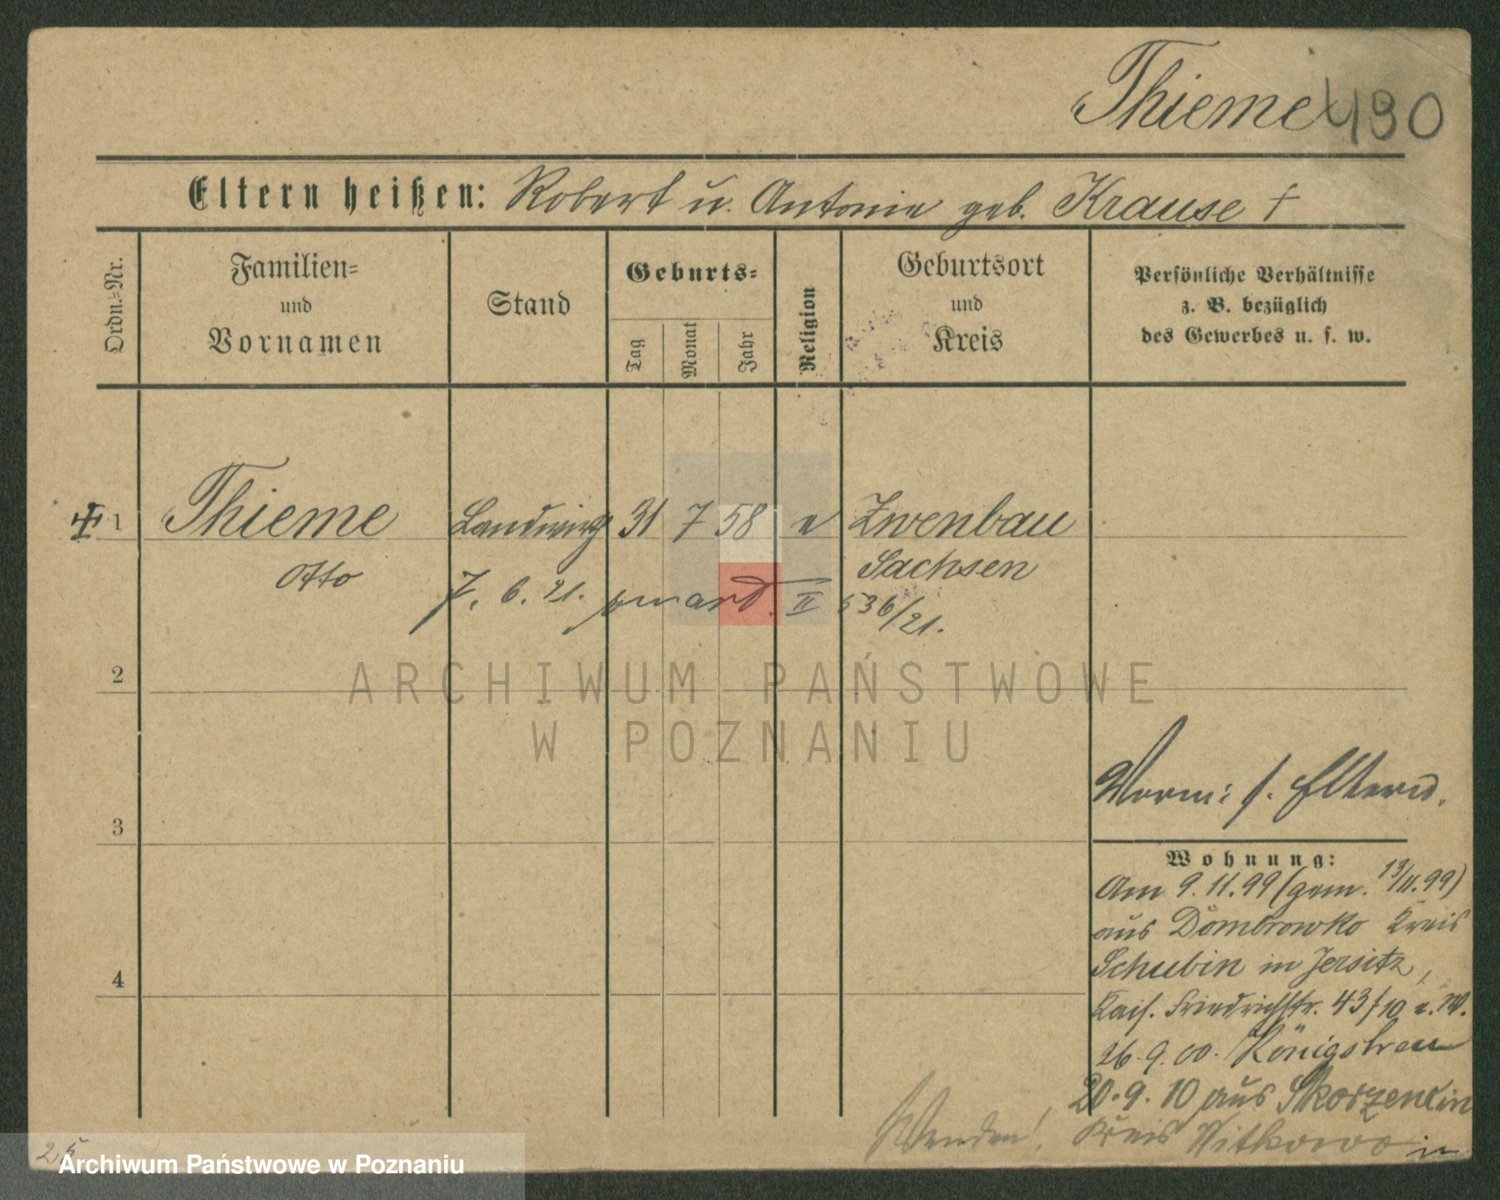 Thieme 490
Eltern heißen: Robert u. Antonie geb. Krause †
Ordn.=Nr.
Familien=
und
Vornamen
Stand
Geburts=
Tag
Monat
Jahr
Religion
Geburtsort
und
Kreis
Persönliche Verhältnisse
z. B. bezüglich
des Gewerbes u. s. w.
1 Thieme Landwirt 31 7 58 e Zwenbau
Otto Sachsen
7. 6. 21. II 536/21.
2
ARCHIWUM PAŃSTWOWE
W POZNANIU
3
4
Worm: s. Eltern.
Wohnung:
Am 9.11.99 (gem. 13/11.99)
aus Dombrowko Kreis
Schubin in Jersitz,
Kais. Friedrichstr. 43
26.9.00. Königstreu
20.9.10 aus Skorzencin
Wenden! Kreis Witkowo in
25
Archiwum Państwowe w Poznaniu